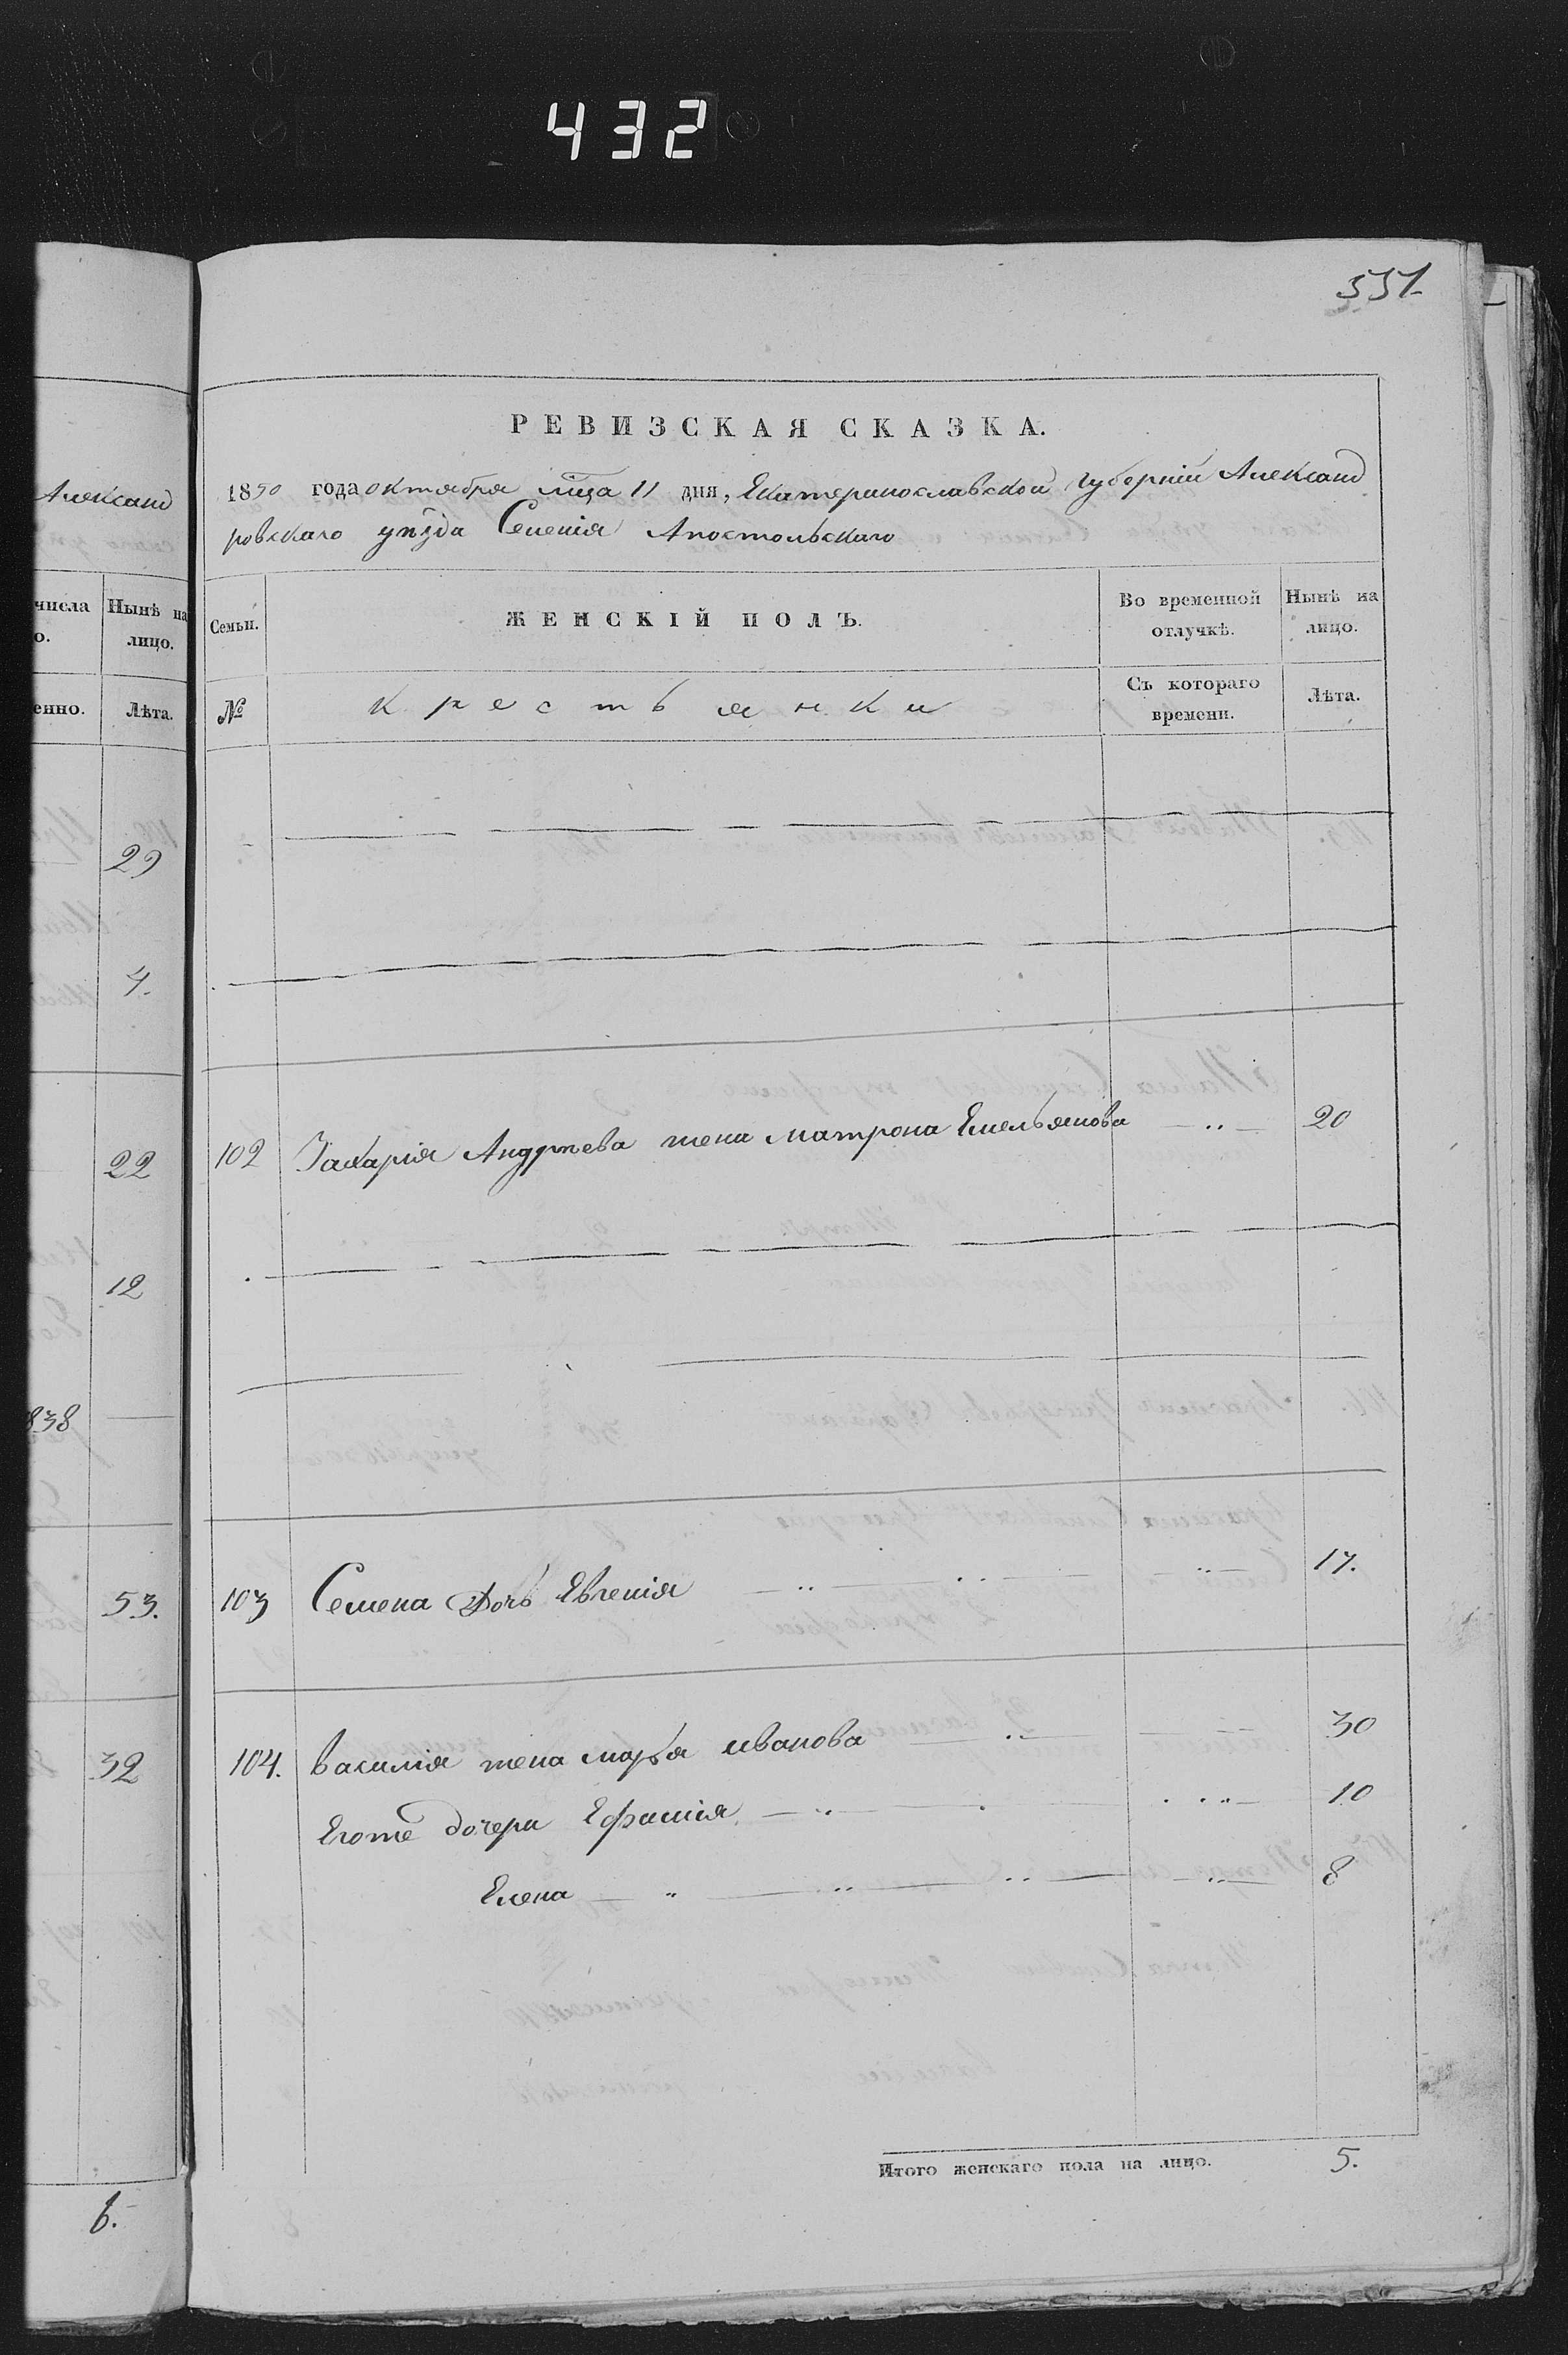 432
331
РЕВИЗСКАЯ СКАЗКА.
1850 года октября мца 11 дня, Екатеринославской Губерніи Александ
ровскаго уѣзда Селенія Апостольскаго
Александ
числа
о.
Нынѣ на
лицо.
енно.
Лѣта.
Семьи.
ЖЕНСКІЙ ПОЛЪ.
Во временной
отлучкѣ.
Нынѣ на
лицо.
№
крестьянки
Съ котораго
времени.
Лѣта.
29
4.
22
102 Захарія Андрѣева жена Матрона Емельянова — „ — 20
12
838
53.
103 Семена дочь Евгенія — „ — „ — 17.
32
104. Василія жена Марья Иванова — „ — 30
Егоже дочери Ефимія — „ — „ — 10
Елена — „ — „ — „ — „ — 8
Итого женскаго пола на лицо. 5.
6.